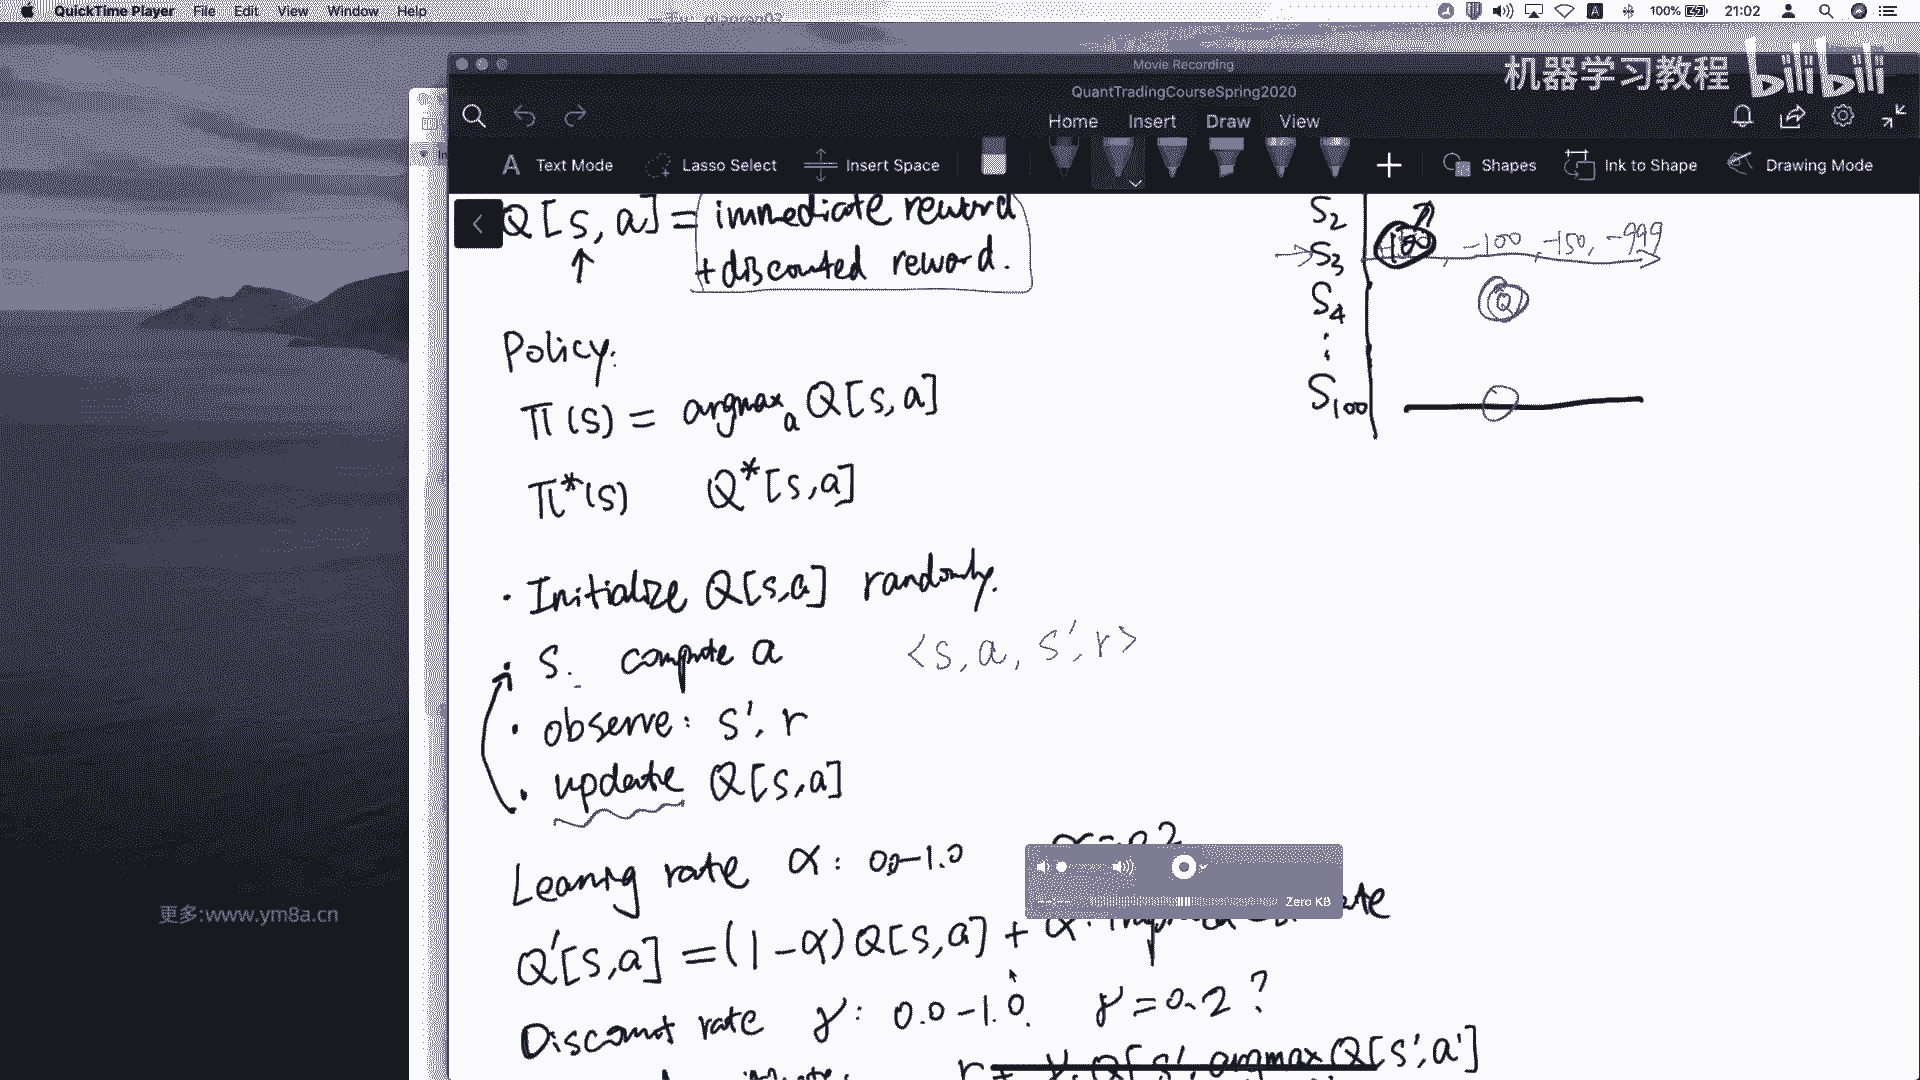 QuickTime Player File Edit View Window Help
100% 21:02
Movie Recording
机器学习教程 bilibili
QuantTradingCourseSpring2020
Home Insert Draw View
Text Mode Lasso Select Insert Space Shapes Ink to Shape Drawing Mode
Q[s,a] = immediate reword
+discounted reword.
S2
S3 -100, -150, -999
S4 Q
⋮
S100
Policy:
π(s) = argmax_a Q[s,a]
π*(s) Q*[s,a]
· Initialize Q[s,a] randomly.
· s. compute a <s, a, s', r>
· observe: s', r
· update Q[s,a]
Learning rate α: 0.0-1.0
Q'[s,a] = (1-α) Q[s,a] + α·
Zero KB
Discount rate γ: 0.0-1.0. γ=0.2?
r+ γ·Q[s', argmax Q[s',a']
更多:www.ym8a.cn